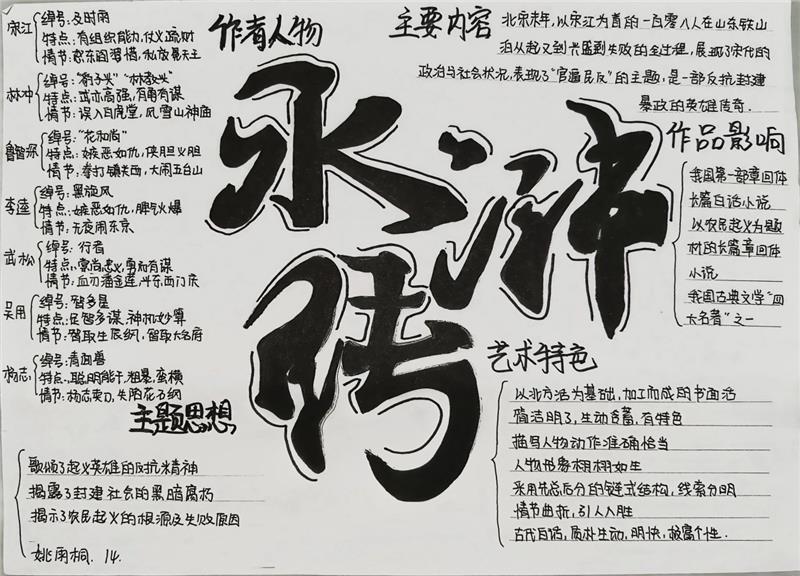 作者人物
宋江
绰号:及时雨
特点:有组织能力,仗义疏财
情节:怒杀阎婆惜,私放晁天王
林冲
绰号:“豹子头”“林教头”
特点:武亦高强,有勇有谋
情节:误入白虎堂,风雪山神庙
鲁智深
绰号:“花和尚”
特点:嫉恶如仇,侠胆义胆
情节:拳打镇关西,大闹五台山
李逵
绰号:黑旋风
特点:嫉恶如仇,脾气火爆
情节:元夜闹东京
武松
绰号:行者
特点:崇尚忠义,勇而有谋
情节:血刃潘金莲,斗杀西门庆
吴用
绰号:智多星
特点:足智多谋,神机妙算
情节:智取生辰纲,智取大名府
杨志
绰号:青面兽
特点:聪明能干,粗暴,蛮横
情节:杨志卖刀,失陷花石纲
水浒传
主要内容
北宋末年,以宋江为首的一百零八人在山东梁山
泊从起义到兴盛到失败的全过程,展现了宋代的
政治与社会状况,表现了“官逼民反”的主题,是一部反抗封建
暴政的英雄传奇.
作品影响
我国第一部章回体
长篇白话小说
以农民起义为题
材的长篇章回体
小说
我国古典文学“四
大名著”之一
艺术特色
以北方话为基础,加工而成的书面话
简洁明了,生动含蓄,有特色
描写人物动作准确恰当
人物形象栩栩如生
采用先总后分的链式结构,线索分明
情节曲折,引人入胜
古代白话,质朴生动,明快,极富个性.
主题思想
歌颂了起义英雄的反抗精神
揭露了封建社会的黑暗腐朽
揭示了农民起义的根源及失败原因
姚雨桐.14.